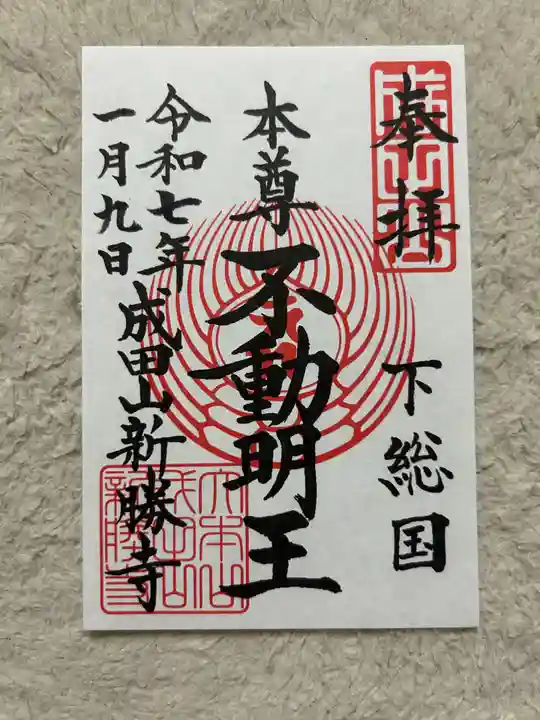 奉拝
下総国
本尊不動明王
令和七年
一月九日
成田山新勝寺
成田山
大本山
成田山
新勝寺